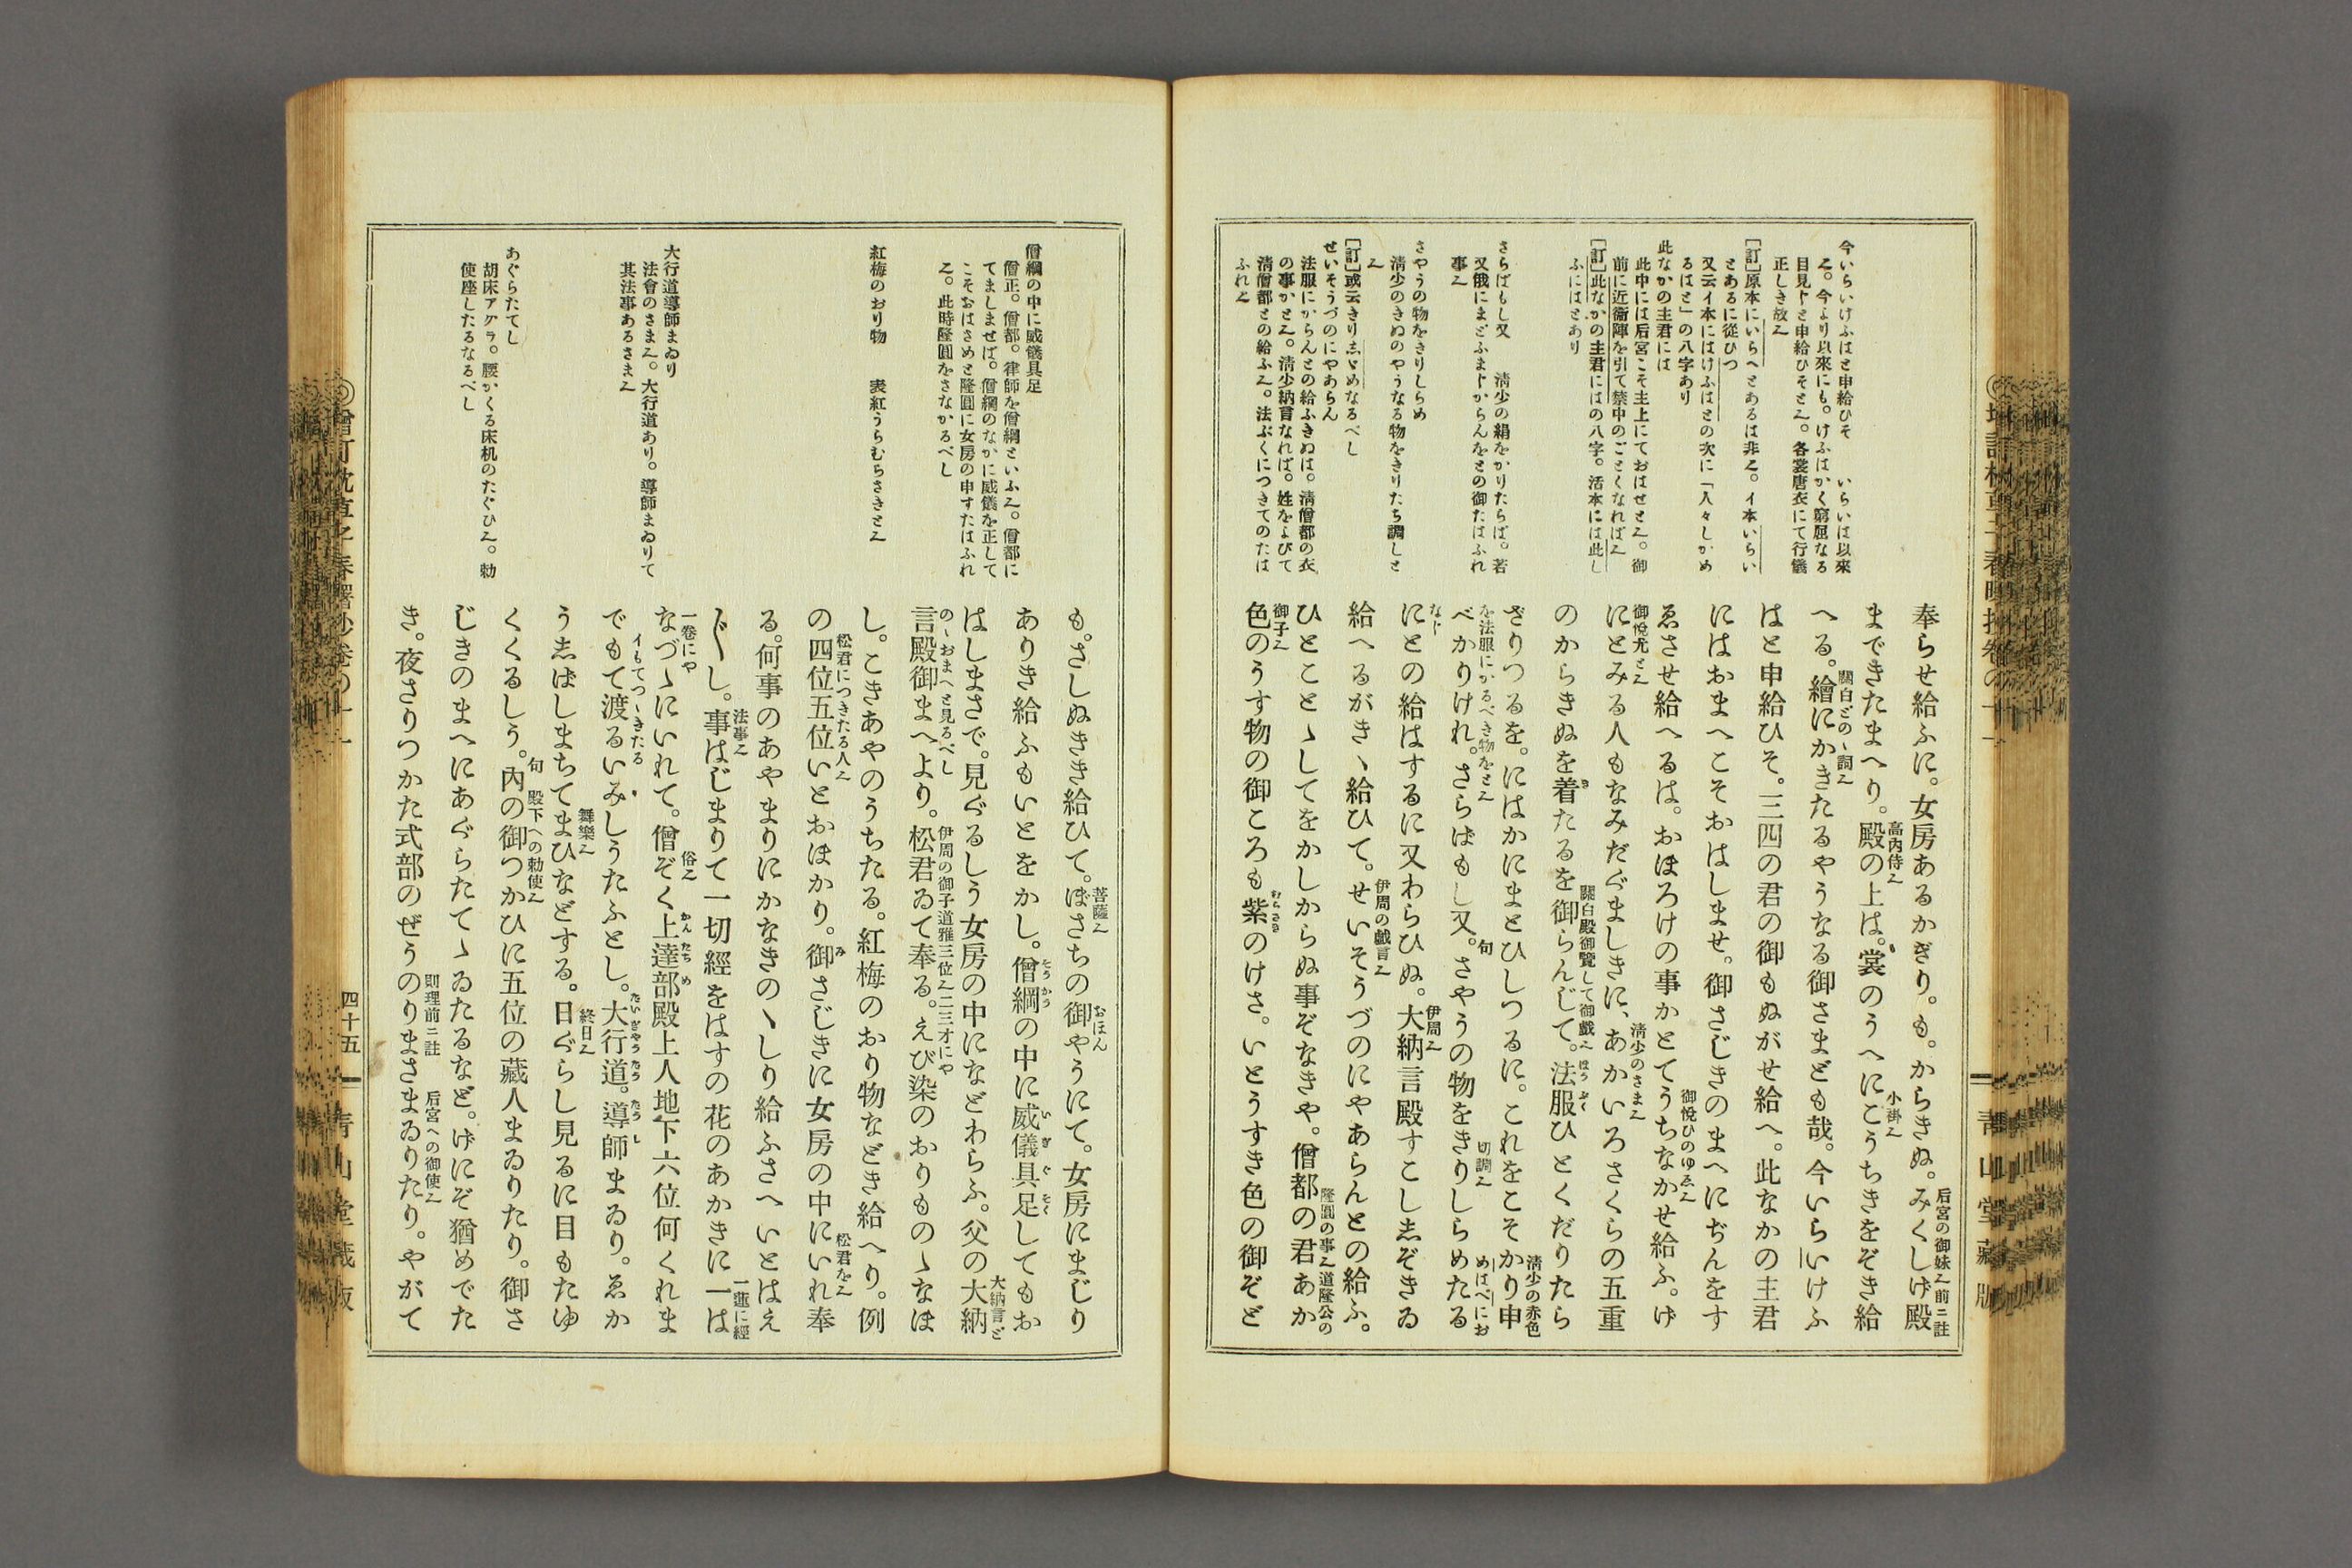 今いらいけふはと申給ひそ　いらいは以來
也。今より以來にも。けふはかく窮屈なる
目見しと申給ひそと也。各裳唐衣にて行儀
正しき故也
[訂]原本にいらへとあるは非也。イ本いらい
とあるに從ひつ
又云イ本にはけふはとの次に「人々しかめ
るはと」の八字あり
此なかの主君には
此中には后宮こそ主上にておはせと也。御
前に近衞陣を引て禁中のごとくなれば也
[訂]此なかの主君にはの八字。活本には此し
ふにはとあり
さらばもし又　淸少の絹をかりたらば。若
又俄にまどふまじからんをとの御たはふれ
事也
さやうの物をきりしらめ
淸少のきぬのやうなる物をきりたち調しと
也
[訂]或云きり志ゞめなるべし
せいそうづのにやあらん
法服にからんとの給ふきぬは。淸僧都の衣
の事かと也。淸少納言なれば。姓をよびて
淸僧都との給ふ也。法ぶくにつきてのたは
ふれ也
奉らせ給ふに。女房あるかぎり。も。からきぬ。みくしげ殿
后宮の御妹也前ニ註
まできたまへり。殿の上は。裳のうへにこうちきをぞき給
高内侍也
小褂也
へる。繪にかきたるやうなる御さまども哉。今いらいけふ
關白どのゝ詞也
はと申給ひそ。三四の君の御もぬがせ給へ。此なかの主君
にはおまへこそおはしませ。御さじきのまへにぢんをす
ゑさせ給へるは。おほろけの事かとてうちなかせ給ふ。げ
御悅ひのゆゑ也
にとみる人もなみだぐましきに、あかいろさくらの五重
御悅尤と也
淸少のさま也
のからきぬを着たるを御らんじて。法服ひとくだりたら
關白殿御覽して御戯也
ざりつるを。にはかにまとひしつるに。これをこそかり申
淸少の赤色
べかりけれ。さらばもし又。さやうの物をきりしらめたる
を法服にかるべき物をと也
句
切調也
めはべにお
にとの給はするに又わらひぬ。大納言殿すこし志ぞきゐ
なし
伊周也
給へるがきゝ給ひて。せいそうづのにやあらんとの給ふ。
伊周の戯言也
ひとことゝしてをかしからぬ事ぞなきや。僧都の君あか
隆圓の事也道隆公の
色のうす物の御ころも紫のけさ。いとうすき色の御ぞど
御子也
むらさき
四十五
僧綱の中に威儀具足
僧正。僧都。律師を僧綱といふ也。僧都に
てましませば。僧綱のなかに威儀を正して
こそおはさめと隆圓に女房の申すたはふれ
也。此時隆圓をさなかるべし
紅梅のおり物　表紅うらむらさきと也
大行道導師まゐり
法會のさま也。大行道あり。導師まゐりて
其法事あるさま也
あぐらたてし
胡床アグラ。腰かくる床机のたぐひ也。勅
使座したるなるべし
も。さしぬきき給ひて。ぼさちの御やうにて。女房にまじり
菩薩也
おほん
ありき給ふもいとをかし。僧綱の中に威儀具足してもお
そうかう
ゐぎぐそく
はしまさで。見ぐるしう女房の中になどわらふ。父の大納
大納言ど
言殿御まへより。松君ゐて奉る。えび染のおりものゝなほ
のゝおまへと見るべし
伊周の御子道雅三位也二三才にや
し。こきあやのうちたる。紅梅のおり物などき給へり。例
の四位五位いとおほかり。御さじきに女房の中にいれ奉
松君につきたる人也
み
松君を也
る。何事のあやまりにかなきのゝしり給ふさへいとはえ
〴〵し。事はじまりて一切經をはすの花のあかきに一は
法事也
一蓮に經
なづゝにいれて。僧ぞく上達部殿上人地下六位何くれま
一卷にや
俗也
かんたちめ
でもて渡るいみしうたふとし。大行道。導師まゐり。ゑか
イもてつゝきたる
たいぎやうたう
たうし
う志ばしまちてまひなどする。日ぐらし見るに目もたゆ
舞樂也
終日也
くくるしう。內の御つかひに五位の藏人まゐりたり。御さ
句
殿下への勅使也
じきのまへにあぐらたてゝゐたるなど。げにぞ猶めでた
き。夜さりつかた式部のぜうのりまさまゐりたり。やがて
則理前ニ註
后宮への御使也